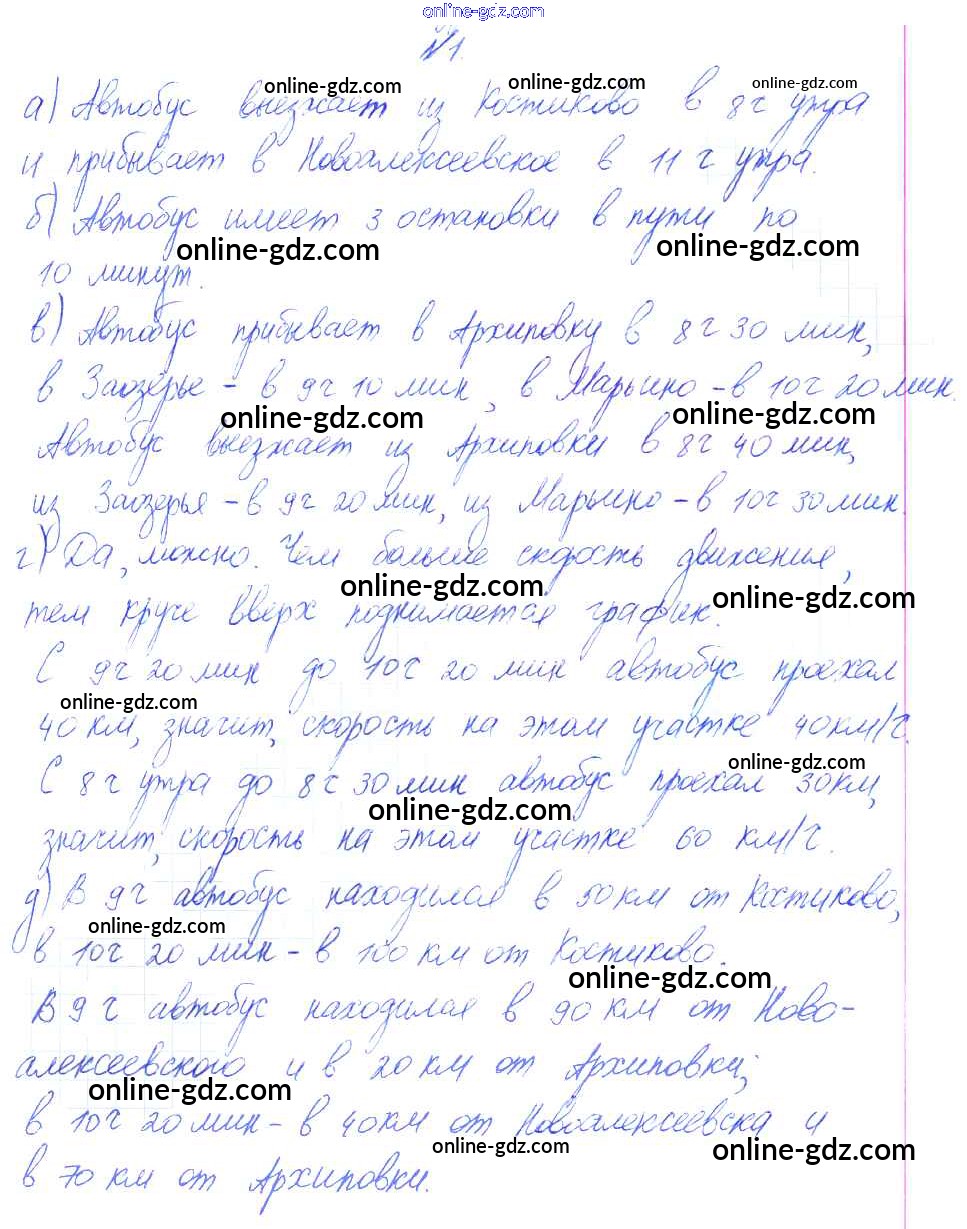 online-gdz.com
№1.
online-gdz.com online-gdz.com online-gdz.com
а) Автобус выезжает из Костиково в 8 г утра
и прибывает в Новоалексеевское в 11 г утра.
б) Автобус имеет 3 остановки в пути по
online-gdz.com online-gdz.com
10 минут.
в) Автобус прибывает в Архиповку в 8 г 30 мин,
в Заозёрье – в 9 г 10 мин, в Марьино – в 10 г 20 мин.
online-gdz.com online-gdz.com
Автобус выезжает из Архиповки в 8 г 40 мин,
из Заозерья – в 9 г 20 мин, из Марьино – в 10 г 30 мин.
г) Да, можно. Чем больше скорость движения,
online-gdz.com online-gdz.com
тем круче вверх поднимается график.
С 9 г 20 мин до 10 г 20 мин автобус проехал
online-gdz.com
40 км, значит, скорость на этом участке 40 км/г.
online-gdz.com
С 8 г утра до 8 г 30 мин автобус проехал 30 км,
online-gdz.com
значит, скорость на этом участке 60 км/г.
д) В 9 г автобус находился в 50 км от Костиково,
online-gdz.com
в 10 г 20 мин – в 100 км от Костиково.
online-gdz.com
В 9 г автобус находился в 90 км от Ново-
алексеевского и в 20 км от Архиповки;
online-gdz.com
в 10 г 20 мин – в 40 км от Новоалексеевска и
online-gdz.com online-gdz.com
в 70 км от Архиповки.